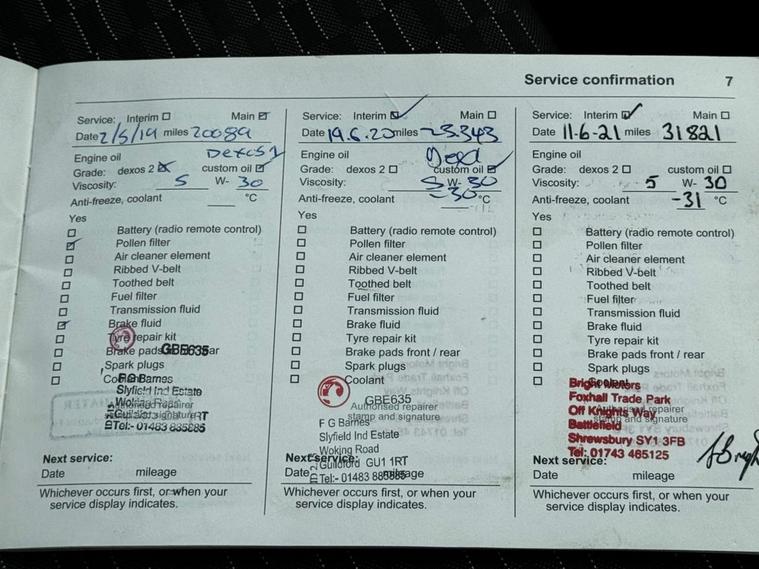 Service confirmation 7
Service: Interim ☐ Main ☑
Date 2/5/19 miles 20089
Engine oil Dexos 1
Grade: dexos 2 ☒ custom oil ☑
Viscosity: 5 W- 30
Anti-freeze, coolant °C
Yes
☐ Battery (radio remote control)
☑ Pollen filter
☐ Air cleaner element
☐ Ribbed V-belt
☐ Toothed belt
☐ Fuel filter
☐ Transmission fluid
☑ Brake fluid
☐ Tyre repair kit
☐ Brake pads front / rear
GBE635
☐ Spark plugs
☐ Coolant
F G Barnes
Slyfield Ind Estate
Woking Road
Authorised repairer
Guildford GU1 1RT
Tel:- 01483 885885
Next service:
Date mileage
Whichever occurs first, or when your
service display indicates.
Service: Interim ☑ Main ☐
Date 19.6.20 miles 23.343
Engine oil
Grade: dexos 2 ☐ custom oil ☑
Viscosity: 5 W- 30
Anti-freeze, coolant -30 °C
Yes
☐ Battery (radio remote control)
☐ Pollen filter
☐ Air cleaner element
☐ Ribbed V-belt
☐ Toothed belt
☐ Fuel filter
☐ Transmission fluid
☐ Brake fluid
☐ Tyre repair kit
☐ Brake pads front / rear
☐ Spark plugs
☐ Coolant
GBE635
Authorised repairer
stamp and signature
F G Barnes
Slyfield Ind Estate
Woking Road
Guildford GU1 1RT
Tel:- 01483 885885
Next service:
Date mileage
Whichever occurs first, or when your
service display indicates.
Service: Interim ☑ Main ☐
Date 11-6-21 miles 31821
Engine oil
Grade: dexos 2 ☐ custom oil ☐
Viscosity: 5 W- 30
Anti-freeze, coolant -31 °C
Yes
☐ Battery (radio remote control)
☐ Pollen filter
☐ Air cleaner element
☐ Ribbed V-belt
☐ Toothed belt
☐ Fuel filter
☐ Transmission fluid
☐ Brake fluid
☐ Tyre repair kit
☐ Brake pads front / rear
☐ Spark plugs
☐ Coolant
Bright Motors
Foxhall Trade Park
Off Knights Way
Authorised repairer
stamp and signature
Battlefield
Shrewsbury SY1 3FB
Tel: 01743 465125
Next service:
Date mileage
Whichever occurs first, or when your
service display indicates.